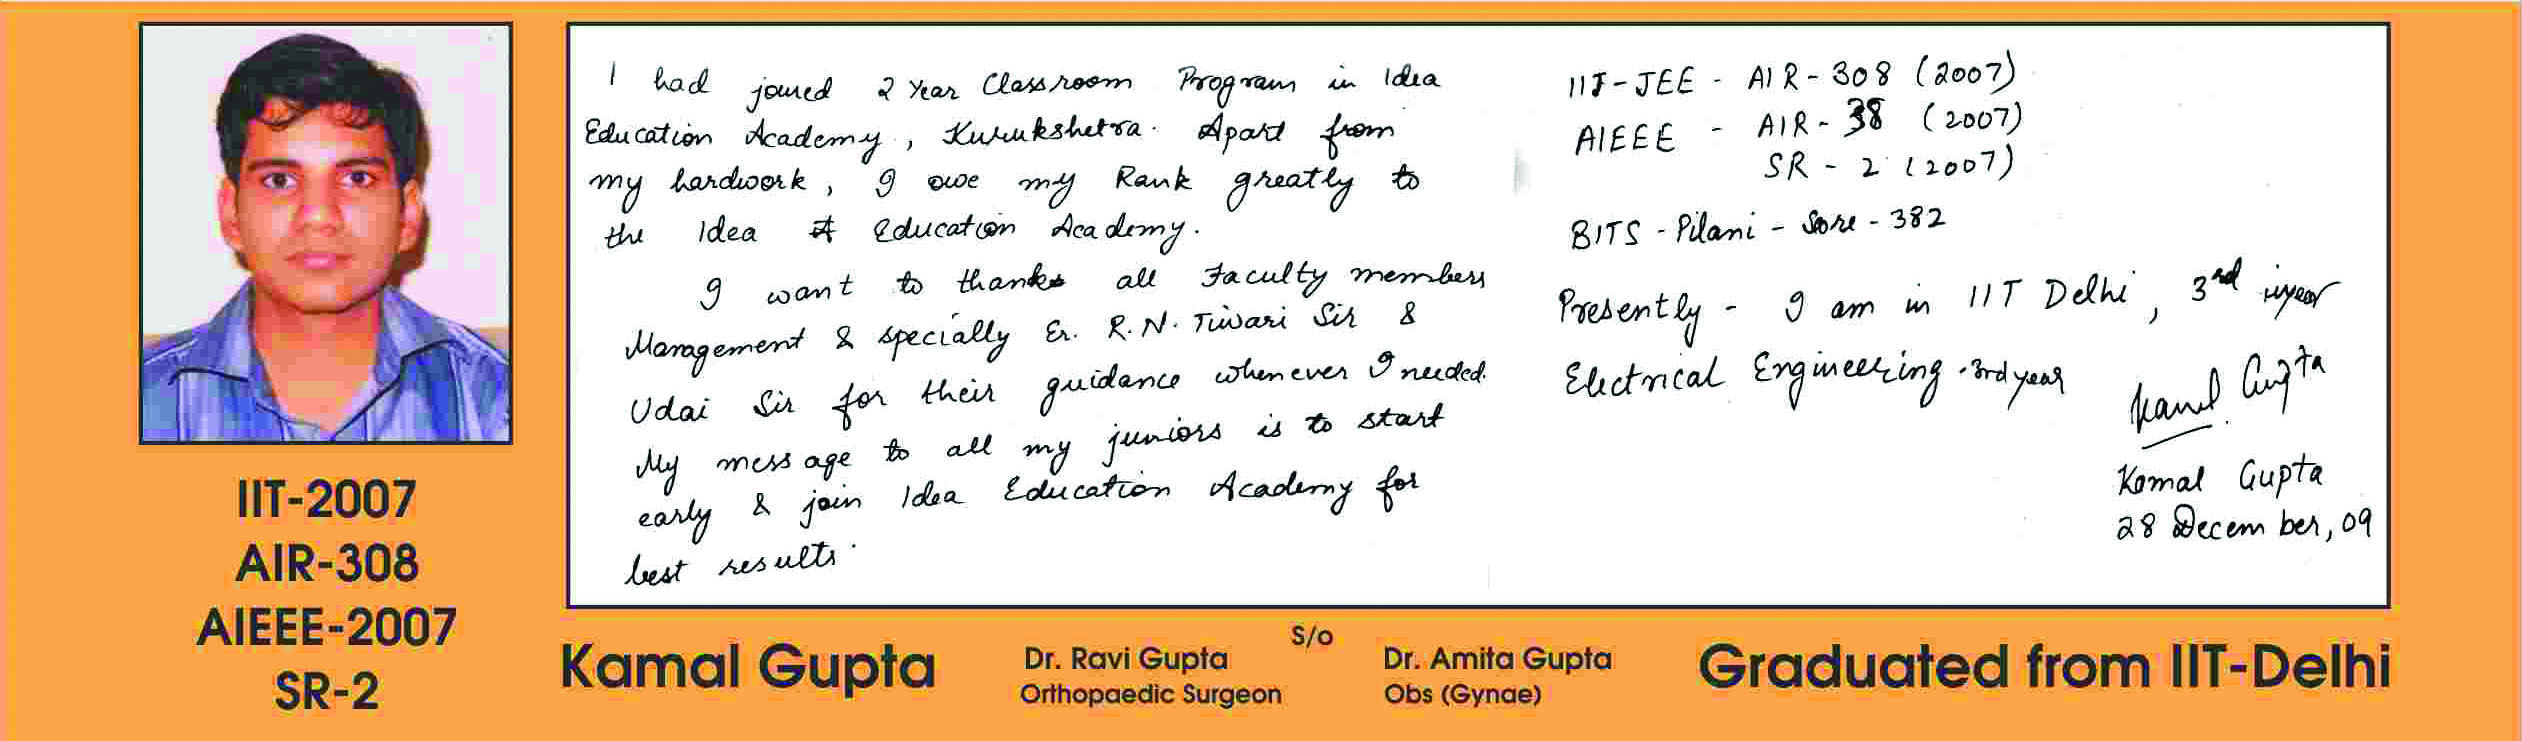 I had joined 2 Year Classroom Program in Idea
Education Academy, Kurukshetra. Apart from
my hardwork, I owe my Rank greatly to
the Idea A Education Academy.
I want to thanks all Faculty members
Management & specially Er. R.N. Tiwari Sir &
Udai Sir for their guidance whenever I needed.
My message to all my juniors is to start
early & join Idea Education Academy for
best results.
IIT-JEE - AIR-308 (2007)
AIEEE - AIR-38 (2007)
SR - 2 (2007)
BITS - Pilani - Score - 382
Presently - I am in IIT Delhi, 3rd year
Electrical Engineering. 3rd year
Kamal Gupta
Kamal Gupta
28 December, 09
IIT-2007
AIR-308
AIEEE-2007
SR-2
Kamal Gupta
S/o
Dr. Ravi Gupta
Orthopaedic Surgeon
Dr. Amita Gupta
Obs (Gynae)
Graduated from IIT-Delhi